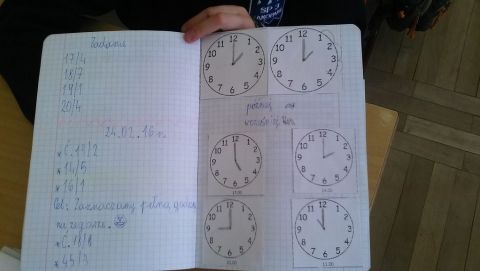 Zadania
17/4
18/7
19/1
20/4
24.02.16r.
* Ć. 13/2
* 14/5
* 16/1
Cel: Zaznaczamy pełne godziny
na zegarze.
* Ć. 18/8
* 45/3
SP 3
12 1 2 3 4 5 6 7 8 9 10 11
12 1 2 3 4 5 6 7 8 9 10 11
później
wcześniej
12 1 2 3 4 5 6 7 8 9 10 11
17.00
12 1 2 3 4 5 6 7 8 9 10 11
14.00
12 1 2 3 4 5 6 7 8 9 10 11
12 1 2 3 4 5 6 7 8 9 10 11
11.00